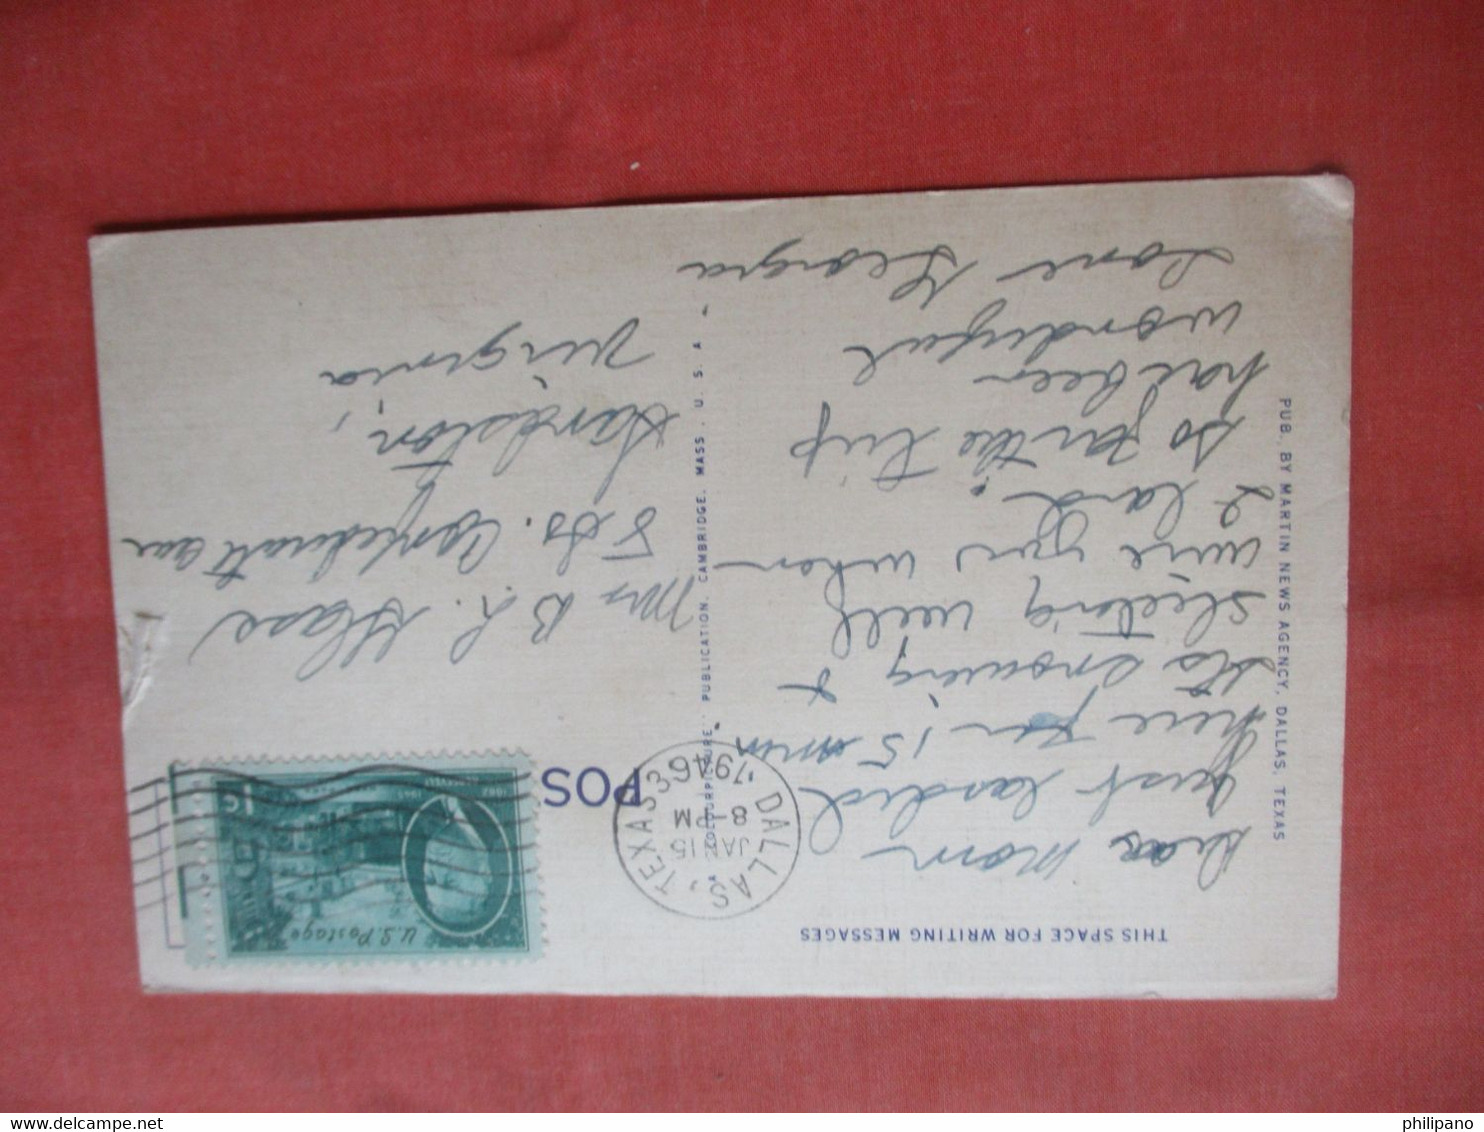 THIS SPACE FOR WRITING MESSAGES
Dear Mom
Just landed
here for 15 min
Its snowing &
sleeting will
wire you when
I land.
So far the trip
has been
wonderful
Love Georgia
PUB. BY MARTIN NEWS AGENCY, DALLAS, TEXAS
"COLOURPICTURE" PUBLICATION, CAMBRIDGE, MASS., U. S. A.
POS
DALLAS, TEXAS 33
JAN 15
8-PM
1946
U.S. Postage
1¢
Mrs B. L. Glase
5 So. Confederate Ave
Sandston,
Virginia
philipano